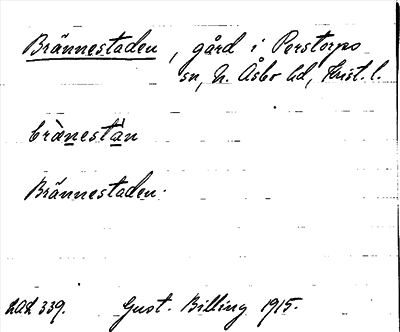 Brännestaden, gård i Perstorps
sn, N. Åsbo hd, Krist. l.
brànestàn
Brännestaden.
339. Gust. Billing 1915.